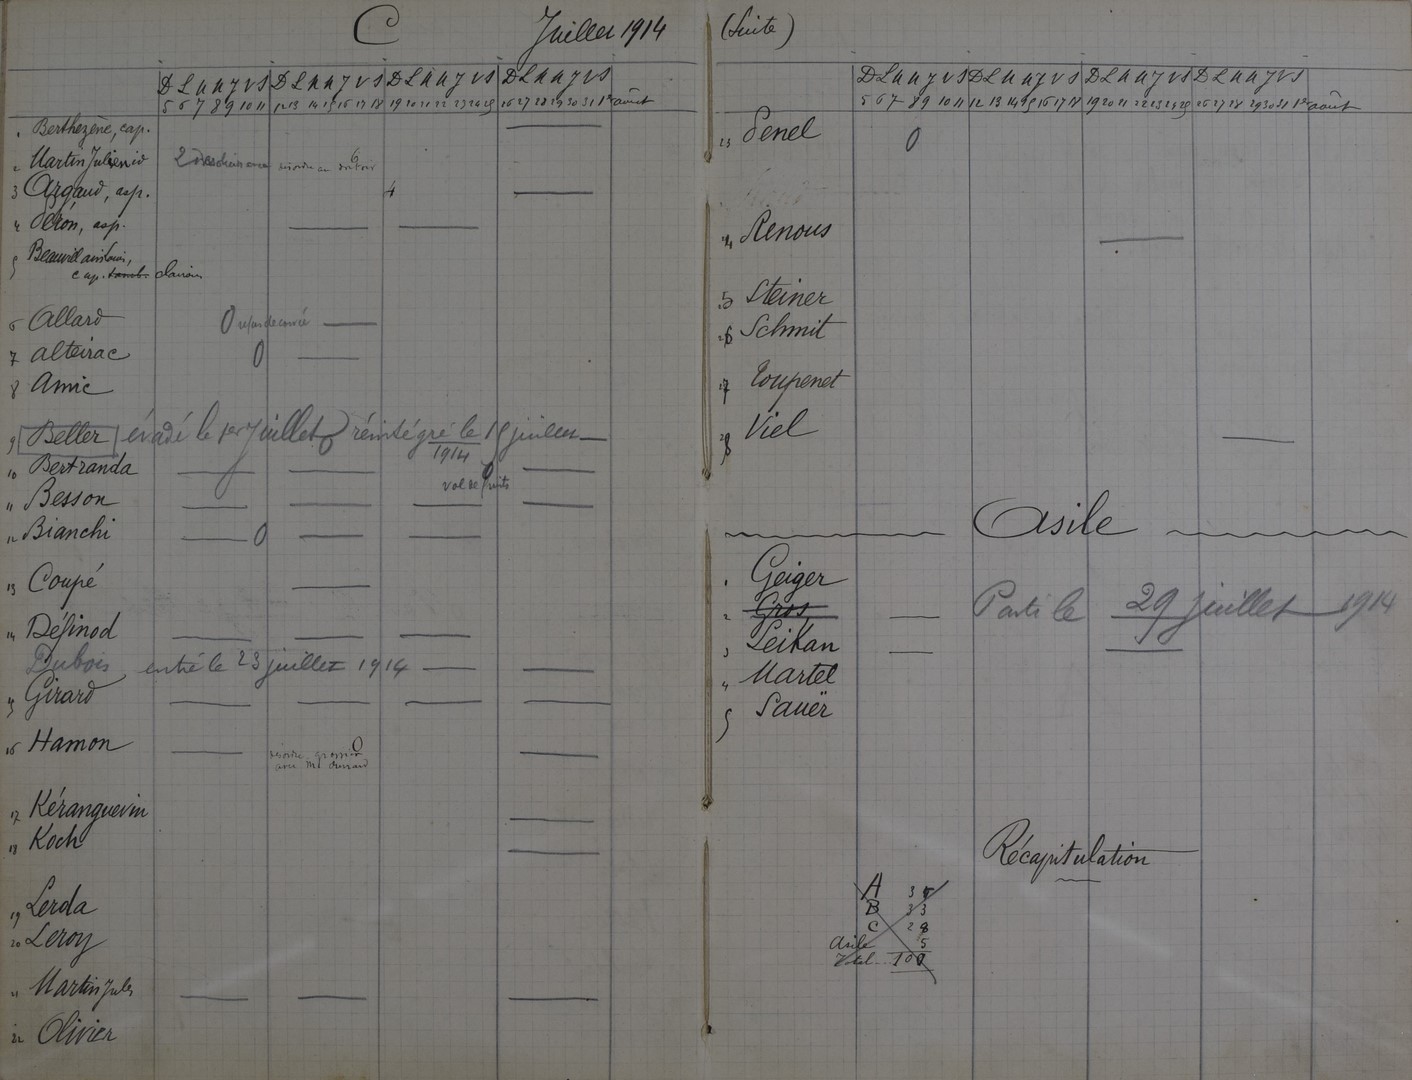 C Juillet 1914
D L M M J V S D L M M J V S D L M M J V S D L M M J V S
5 6 7 8 9 10 11 12 13 14 15 16 17 18 19 20 21 22 23 24 25 26 27 28 29 30 31 1er août
1 Berthezène, cap.
2 Martin Julien
3 Argaud, asp. 4
4 asp.
5
cap. tamb. clairon
6 Allard 0
7 Alteirac 0
8 Amic
9 Beller évadé le 1er juillet réintégré le 15 juillet
1914
10 Bertranda 0
vol de fruits
11 Besson
12 Bianchi 0
13 Coupé
14 Définod
Dubois entré le 23 juillet 1914
15 Girard
16 Hamon 0
17 Kéranguevin
18 Koch
19 Lerda
20 Leroy
21 Martin Jules
22 Olivier
(Suite)
D L M M J V S D L M M J V S D L M M J V S D L M M J V S
5 6 7 8 9 10 11 12 13 14 15 16 17 18 19 20 21 22 23 24 25 26 27 28 29 30 31 1er août
23 Penel 0
24 Renous
25 Steiner
26 Schmit
27 Toupenet
28 Viel
Asile
1 Geiger
2 Gros Parti le 29 juillet 1914
3 Leikan
4 Martel
5 Sauër
Récapitulation
A
B 33
C 28
Asile 5
Total